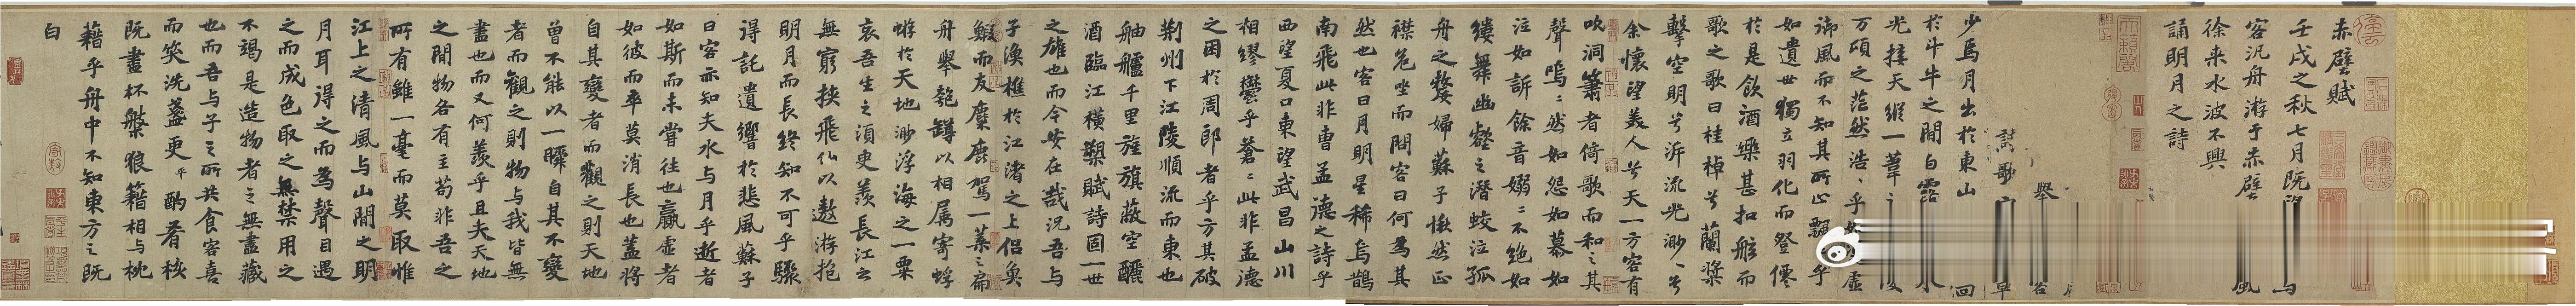 赤壁賦
壬戌之秋七月既望 与
客汎舟游于赤壁 風
徐来水波不興
舉
誦明月之詩
詩歌
少焉月出於東山
於斗牛之間白露 水
光接天縱一葦
万頃之茫然浩、乎 虛
御風而不知其所止飄 乎
如遺世獨立羽化而登僊
於是飲酒樂甚扣舷而
歌之歌曰桂棹兮蘭槳
擊空明兮泝流光渺、兮
余懷望美人兮天一方客有
吹洞簫者倚歌而和之其
聲嗚〻然如怨如慕如
泣如訴餘音嫋〻不絶如
縷舞幽壑之潛蛟泣孤
舟之嫠婦蘇子愀然正
襟危坐而問客曰何為其
然也客曰月明星稀烏鵲
南飛此非曹孟德之詩乎
西望夏口東望武昌山川
相繆鬱乎蒼〻此非孟德
之困於周郎者乎方其破
荊州下江陵順流而東也
舳艫千里旌旗蔽空釃
酒臨江橫槊賦詩固一世
之雄也而今安在哉況吾与
子漁樵於江渚之上侶魚
鰕而友麋鹿駕一葉之扁
舟舉匏罇以相属寄蜉
蝣於天地渺浮海之一粟
哀吾生之須臾羨長江之
無窮挾飛仙以遨游抱
明月而長終知不可乎驟
得託遺響於悲風蘇子
曰客亦知夫水与月乎逝者
如斯而未嘗往也贏虛者
如彼而卒莫消長也蓋將
自其變者而觀之則天地
曾不能以一瞬自其不變
者而觀之則物与我皆無
盡也而又何羨乎且夫天地
之間物各有主苟非吾之
所有雖一毫而莫取惟
江上之清風与山間之明
月耳得之而為聲目遇
之而成色取之無禁用之
不竭是造物者之無盡藏
也而吾与子之所共食客喜
而笑洗盞更酌肴核
既盡杯槃狼籍相与枕
藉乎舟中不知東方之既
白